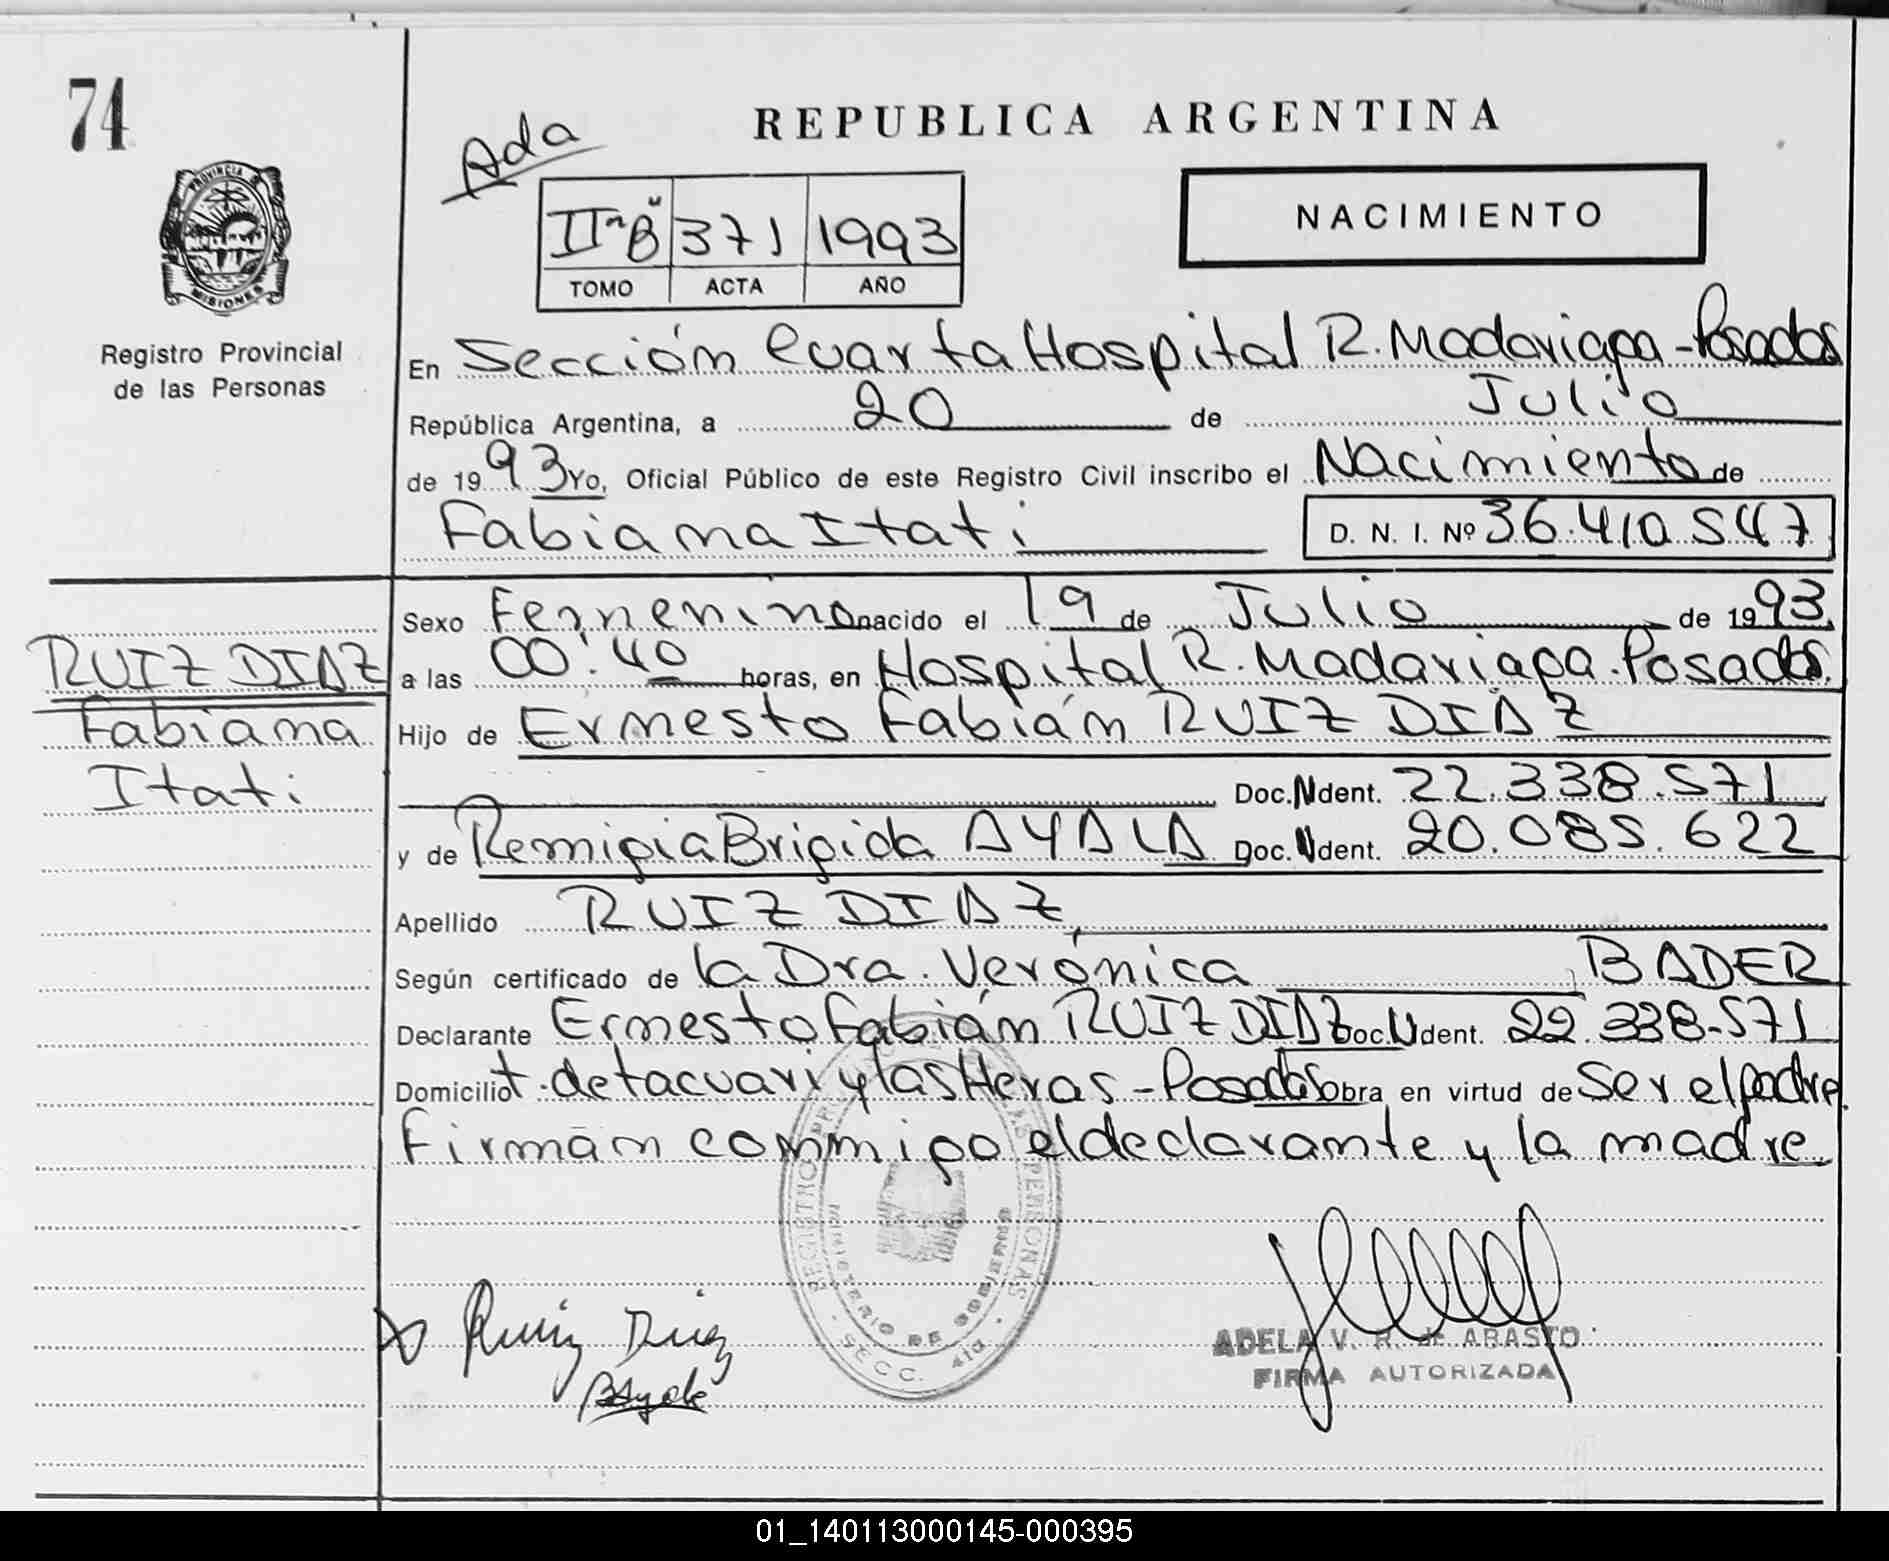 74
Ada
REPUBLICA ARGENTINA
PROVINCIA D
MISIONES
II "B" 371 1993
TOMO ACTA AÑO
NACIMIENTO
Registro Provincial
de las Personas
En Sección Cuarta Hospital R. Madariaga - Posadas
República Argentina, a 20 de Julio
de 1993 Yo, Oficial Público de este Registro Civil inscribo el Nacimiento de
Fabiana Itati D. N. I. Nº 36.410.547
Sexo Femenino nacido el 19 de Julio de 1993
RUIZ DIAZ
Fabiana
Itati
a las 00:40 horas, en Hospital R. Madariaga. Posadas.
Hijo de Ernesto Fabián RUIZ DIAZ
Doc. N Ident. 22.338.571
y de Remigia Brigida AYALA Doc. N Ident. 20.085.622
Apellido RUIZ DIAZ
Según certificado de la Dra. Verónica BADER
Declarante Ernesto Fabián RUIZ DIAZ Doc. N Ident. 22.338.571
Domicilio t. de tacuari y las Heras - Posadas obra en virtud de Ser el padre
Firman conmigo el declarante y la madre
REGISTRO PROVINCIAL DE LAS PERSONAS
MINISTERIO DE GOBIERNO
SECC. 4ta
Ruiz Diaz
BAyala
ADELA V. R. de ABASTO
FIRMA AUTORIZADA
01_140113000145-000395